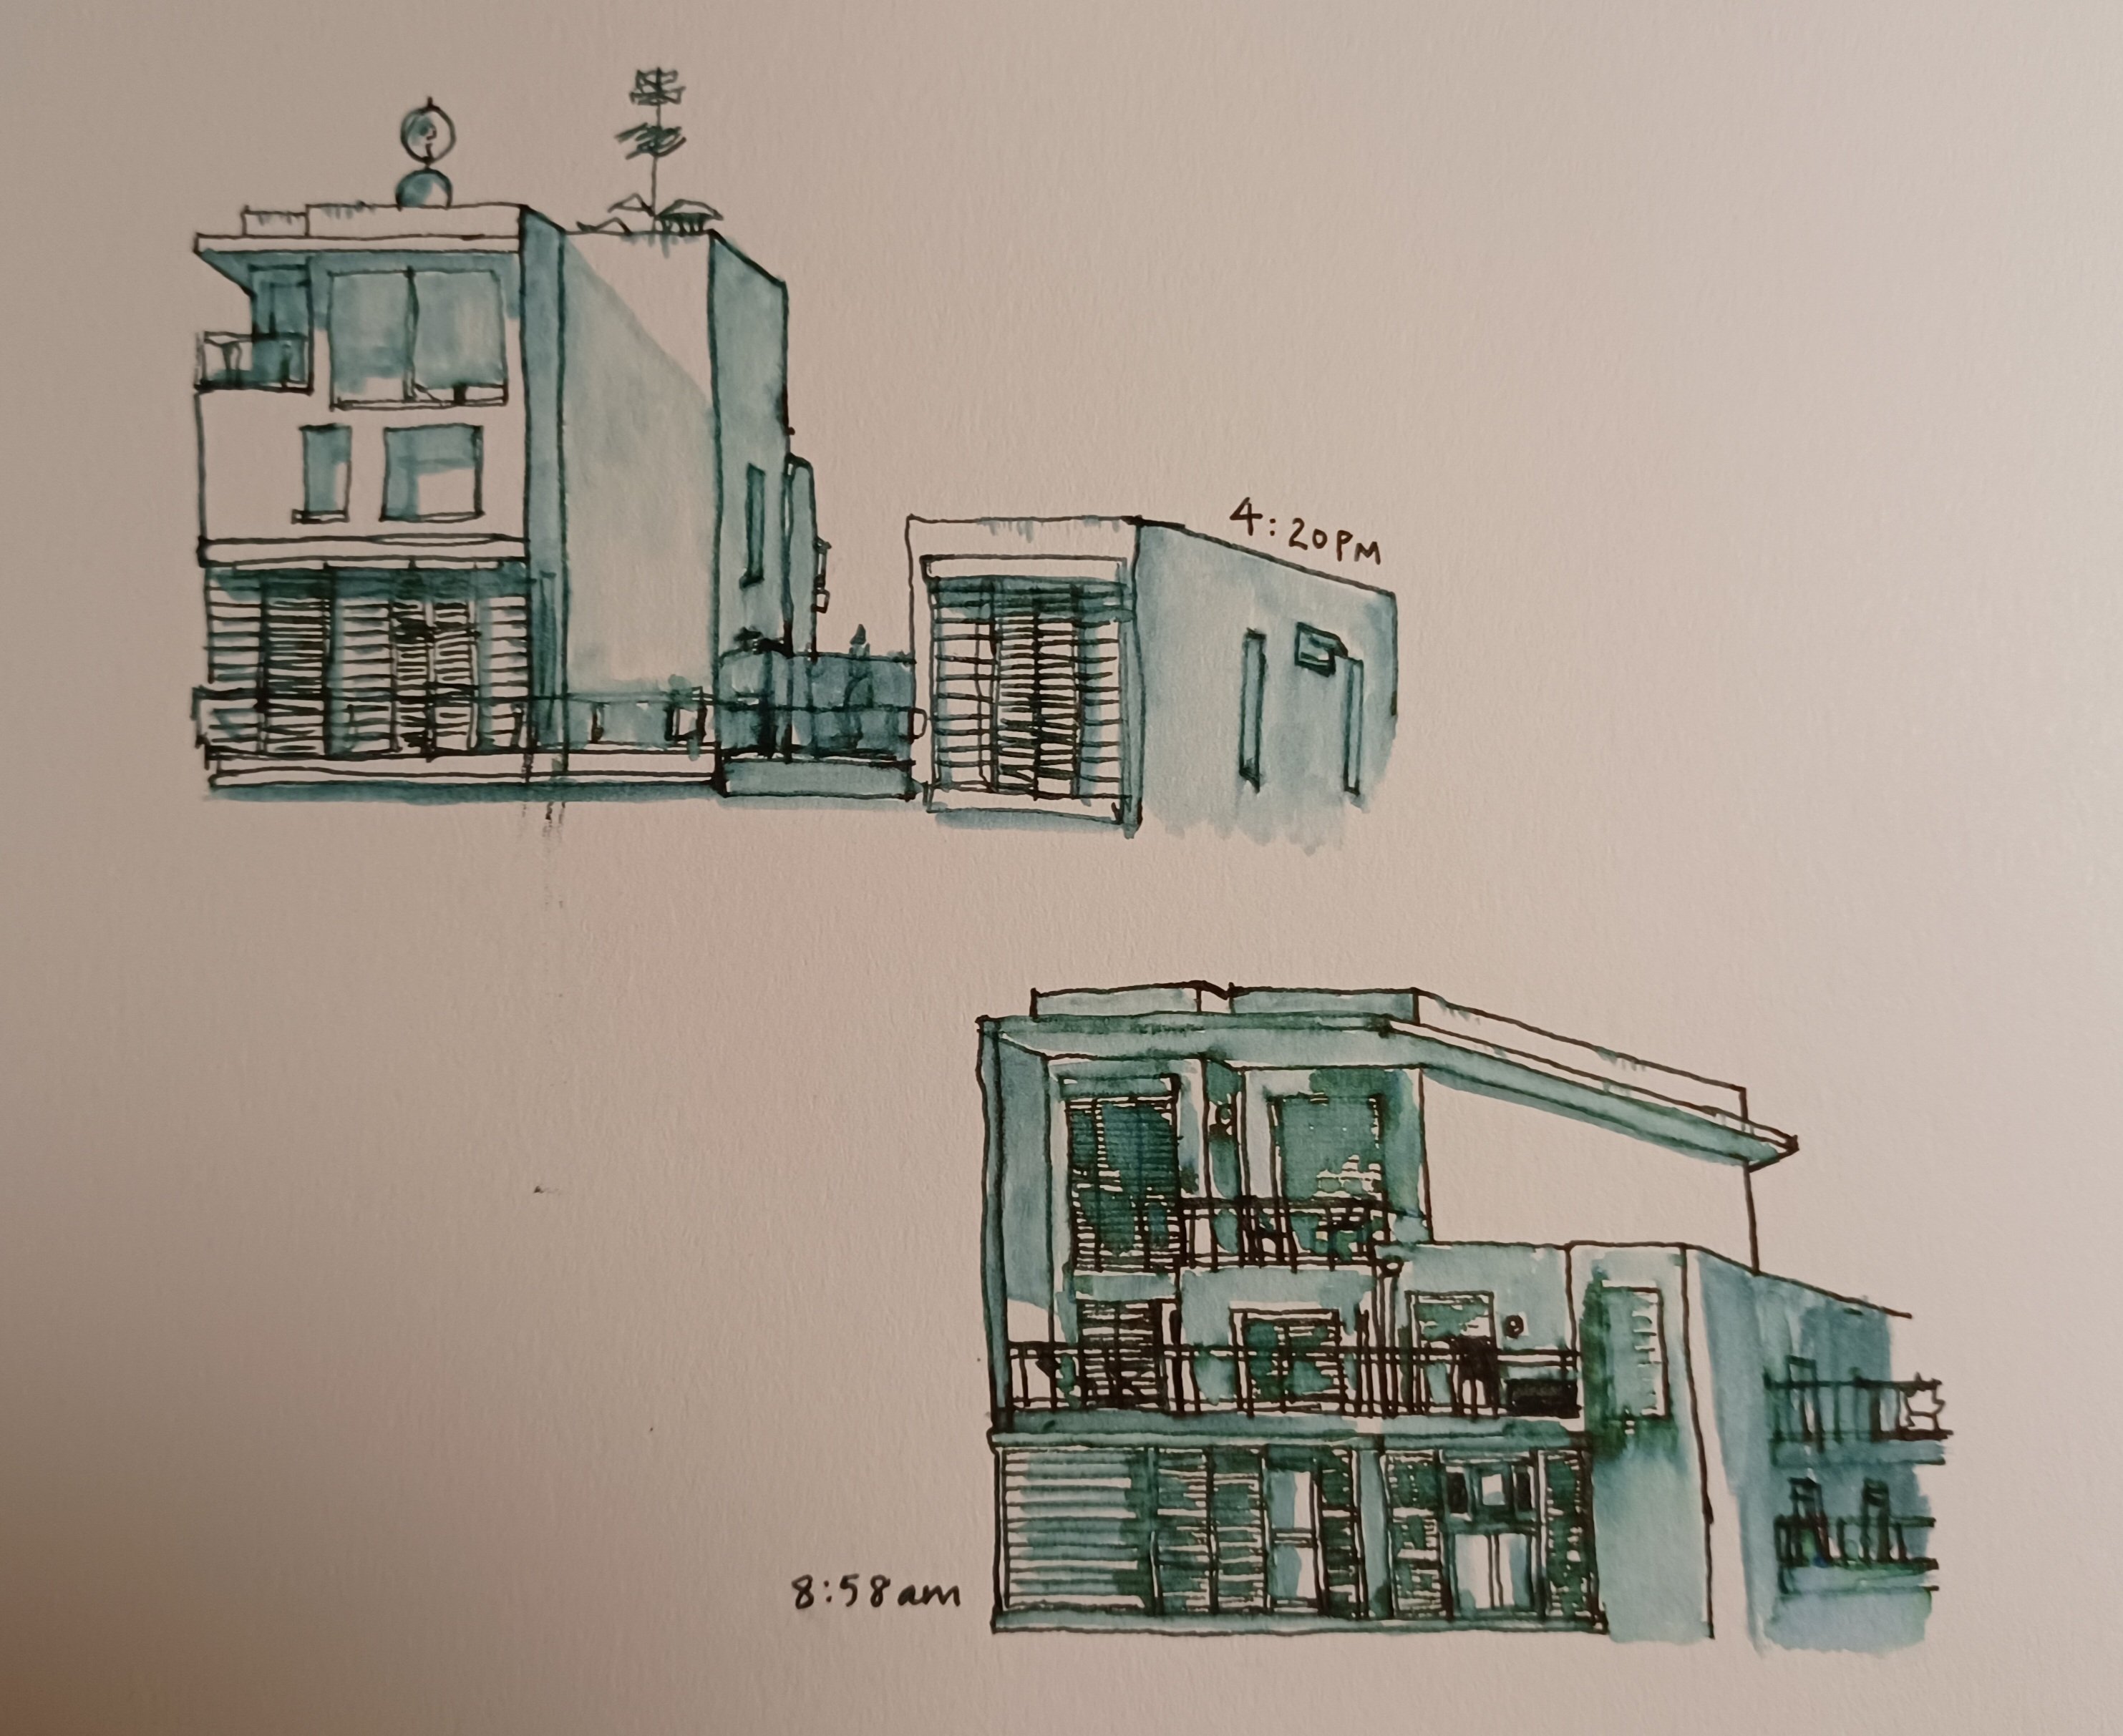 4:20PM
8:58am